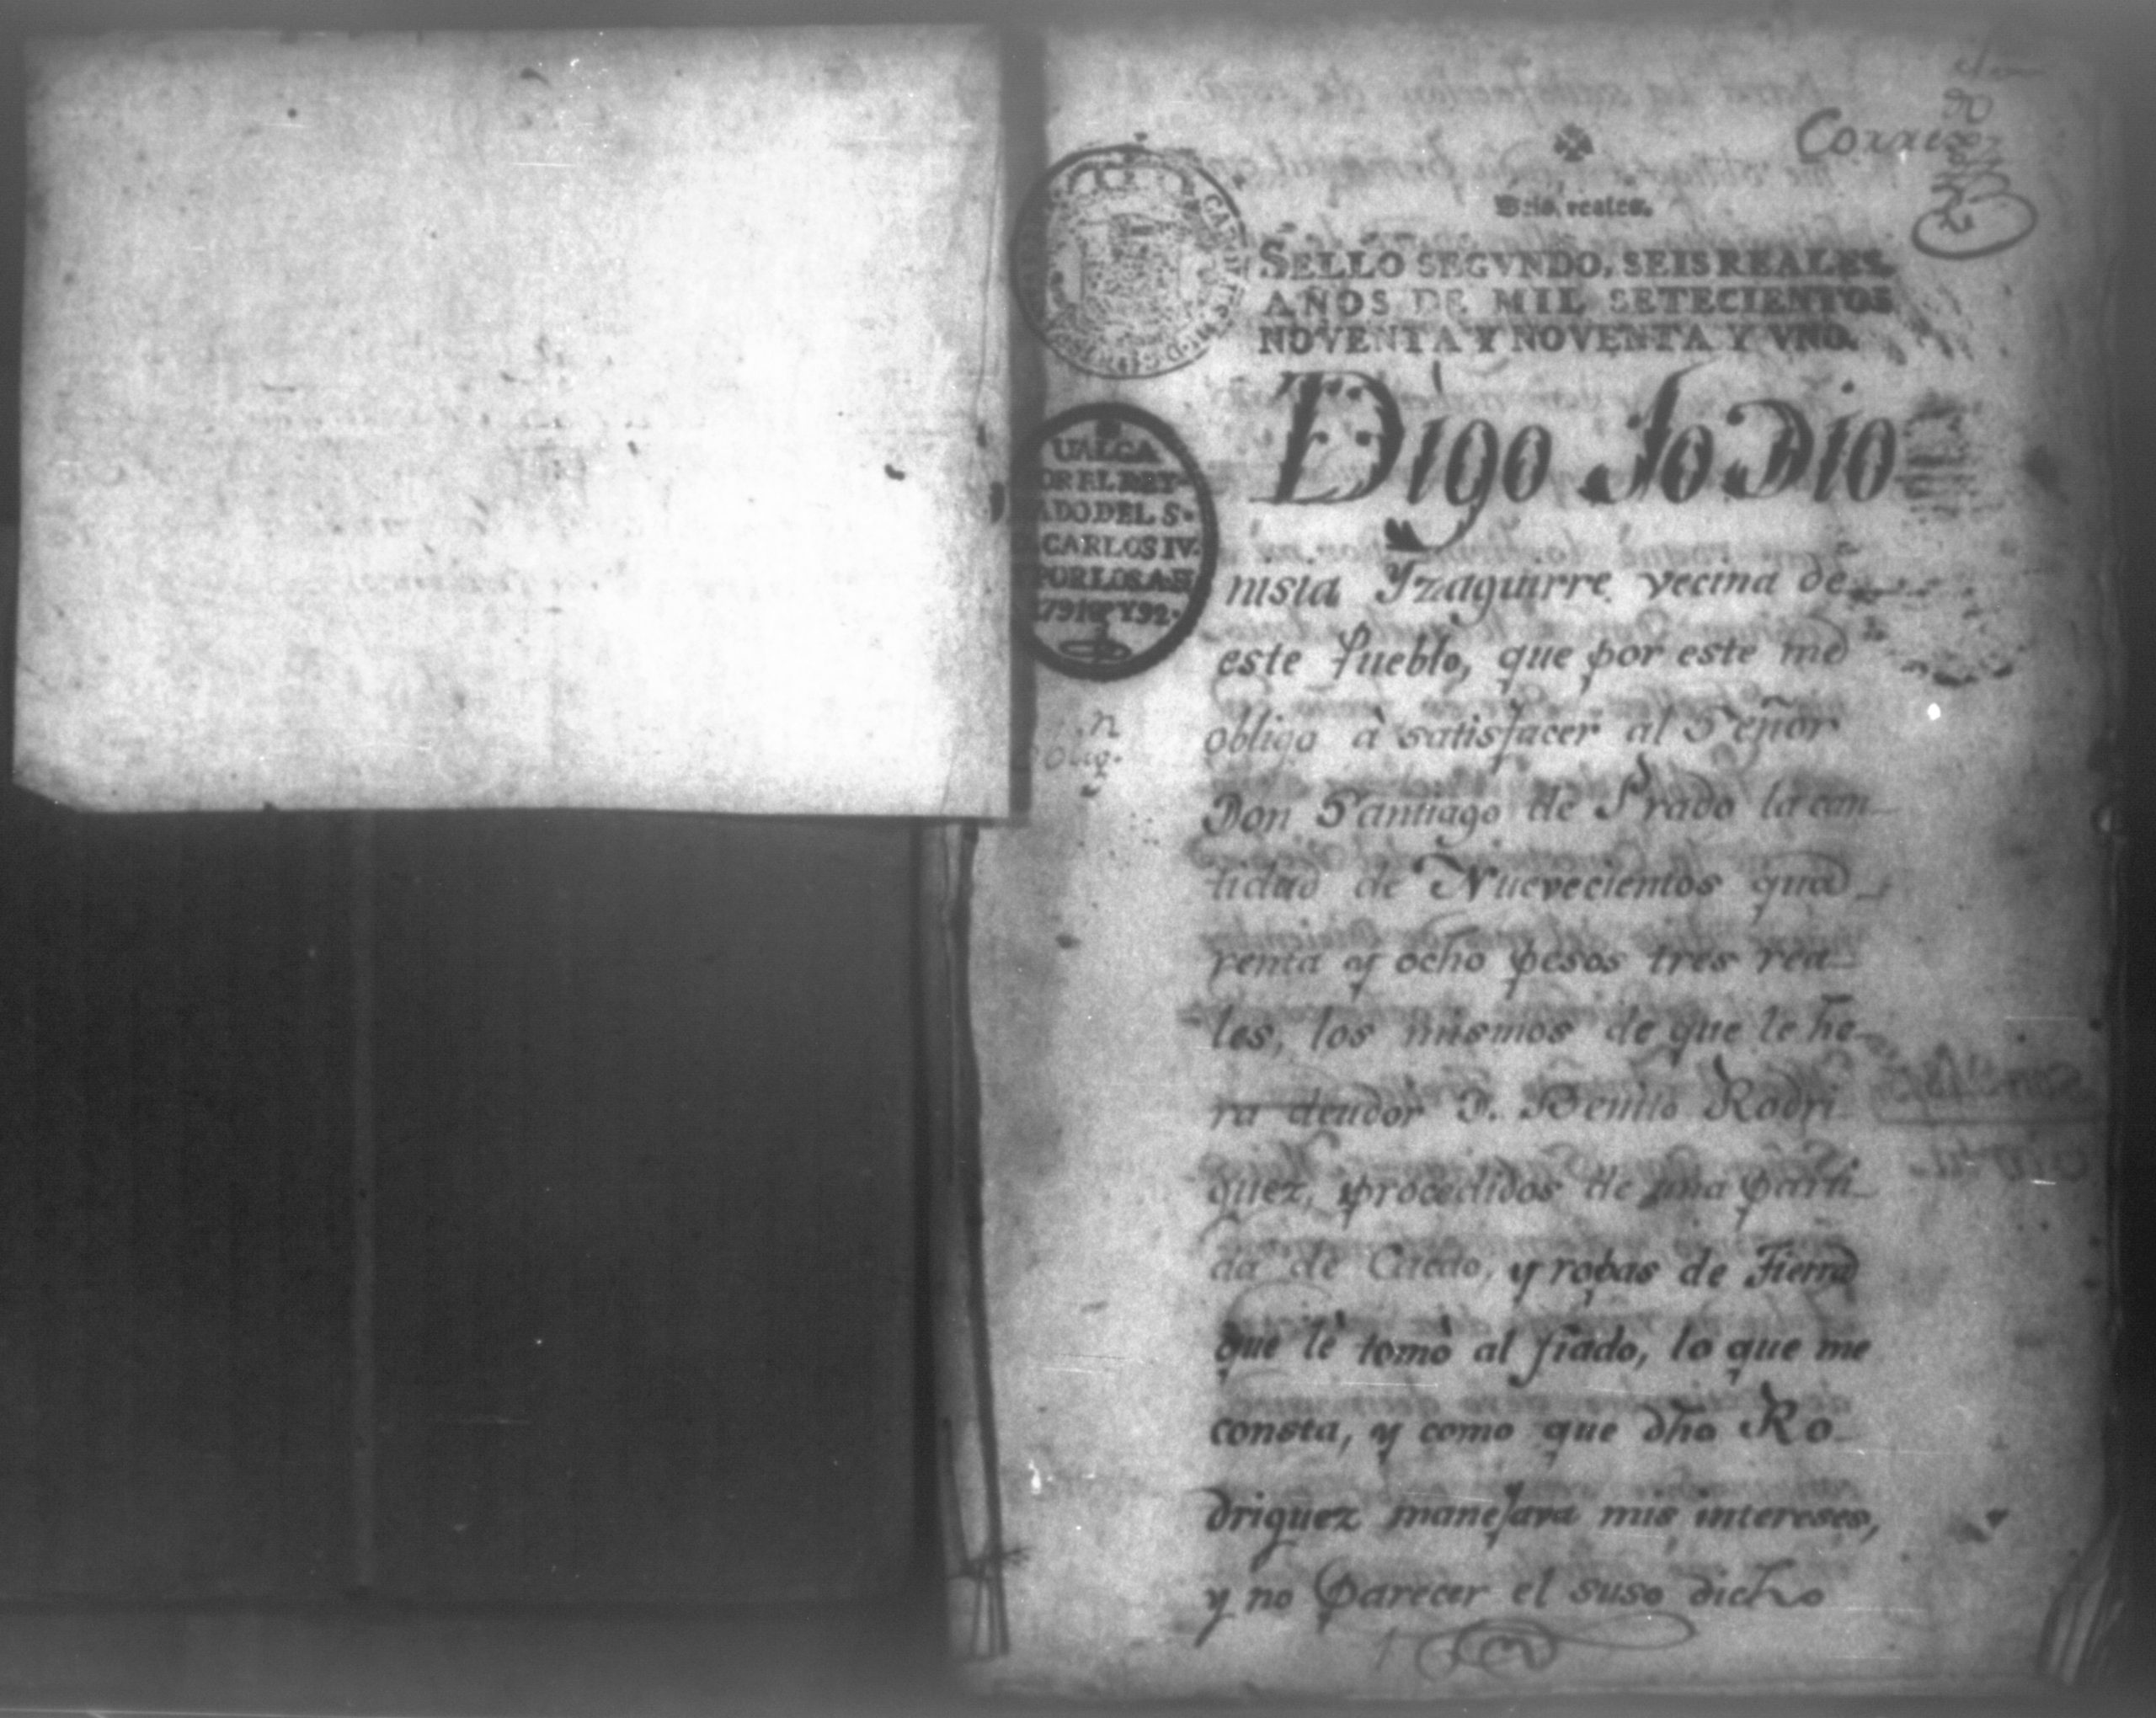 Seis reales.
SELLO SEGVNDO, SEIS REALES,
AÑOS DE MIL SETECIENTOS
NOVENTA Y NOVENTA Y VNO.
UALGA
OR EL REY
ADO DEL S.
CARLOS IV.
POR LOS A.S
1791 Y 92.
Digo Yo Dio
nisia Yzaguirre vecina de
este Pueblo, que por este me
obligo à satisfacer al Señor
Don Santiago de Prado la can_
tidad de Nuevecientos qua_
renta y ocho pesos tres rea_
les, los mismos de que le he_
ra deudor D. Benito Rodri
guez, procedidos de una parti_
da de Cacao, y ropas de Tierra
que le tomò al fiado, lo que me
consta, y como que dho Ro_
driguez manejara mis intereses,
y no parecer el suso dicho